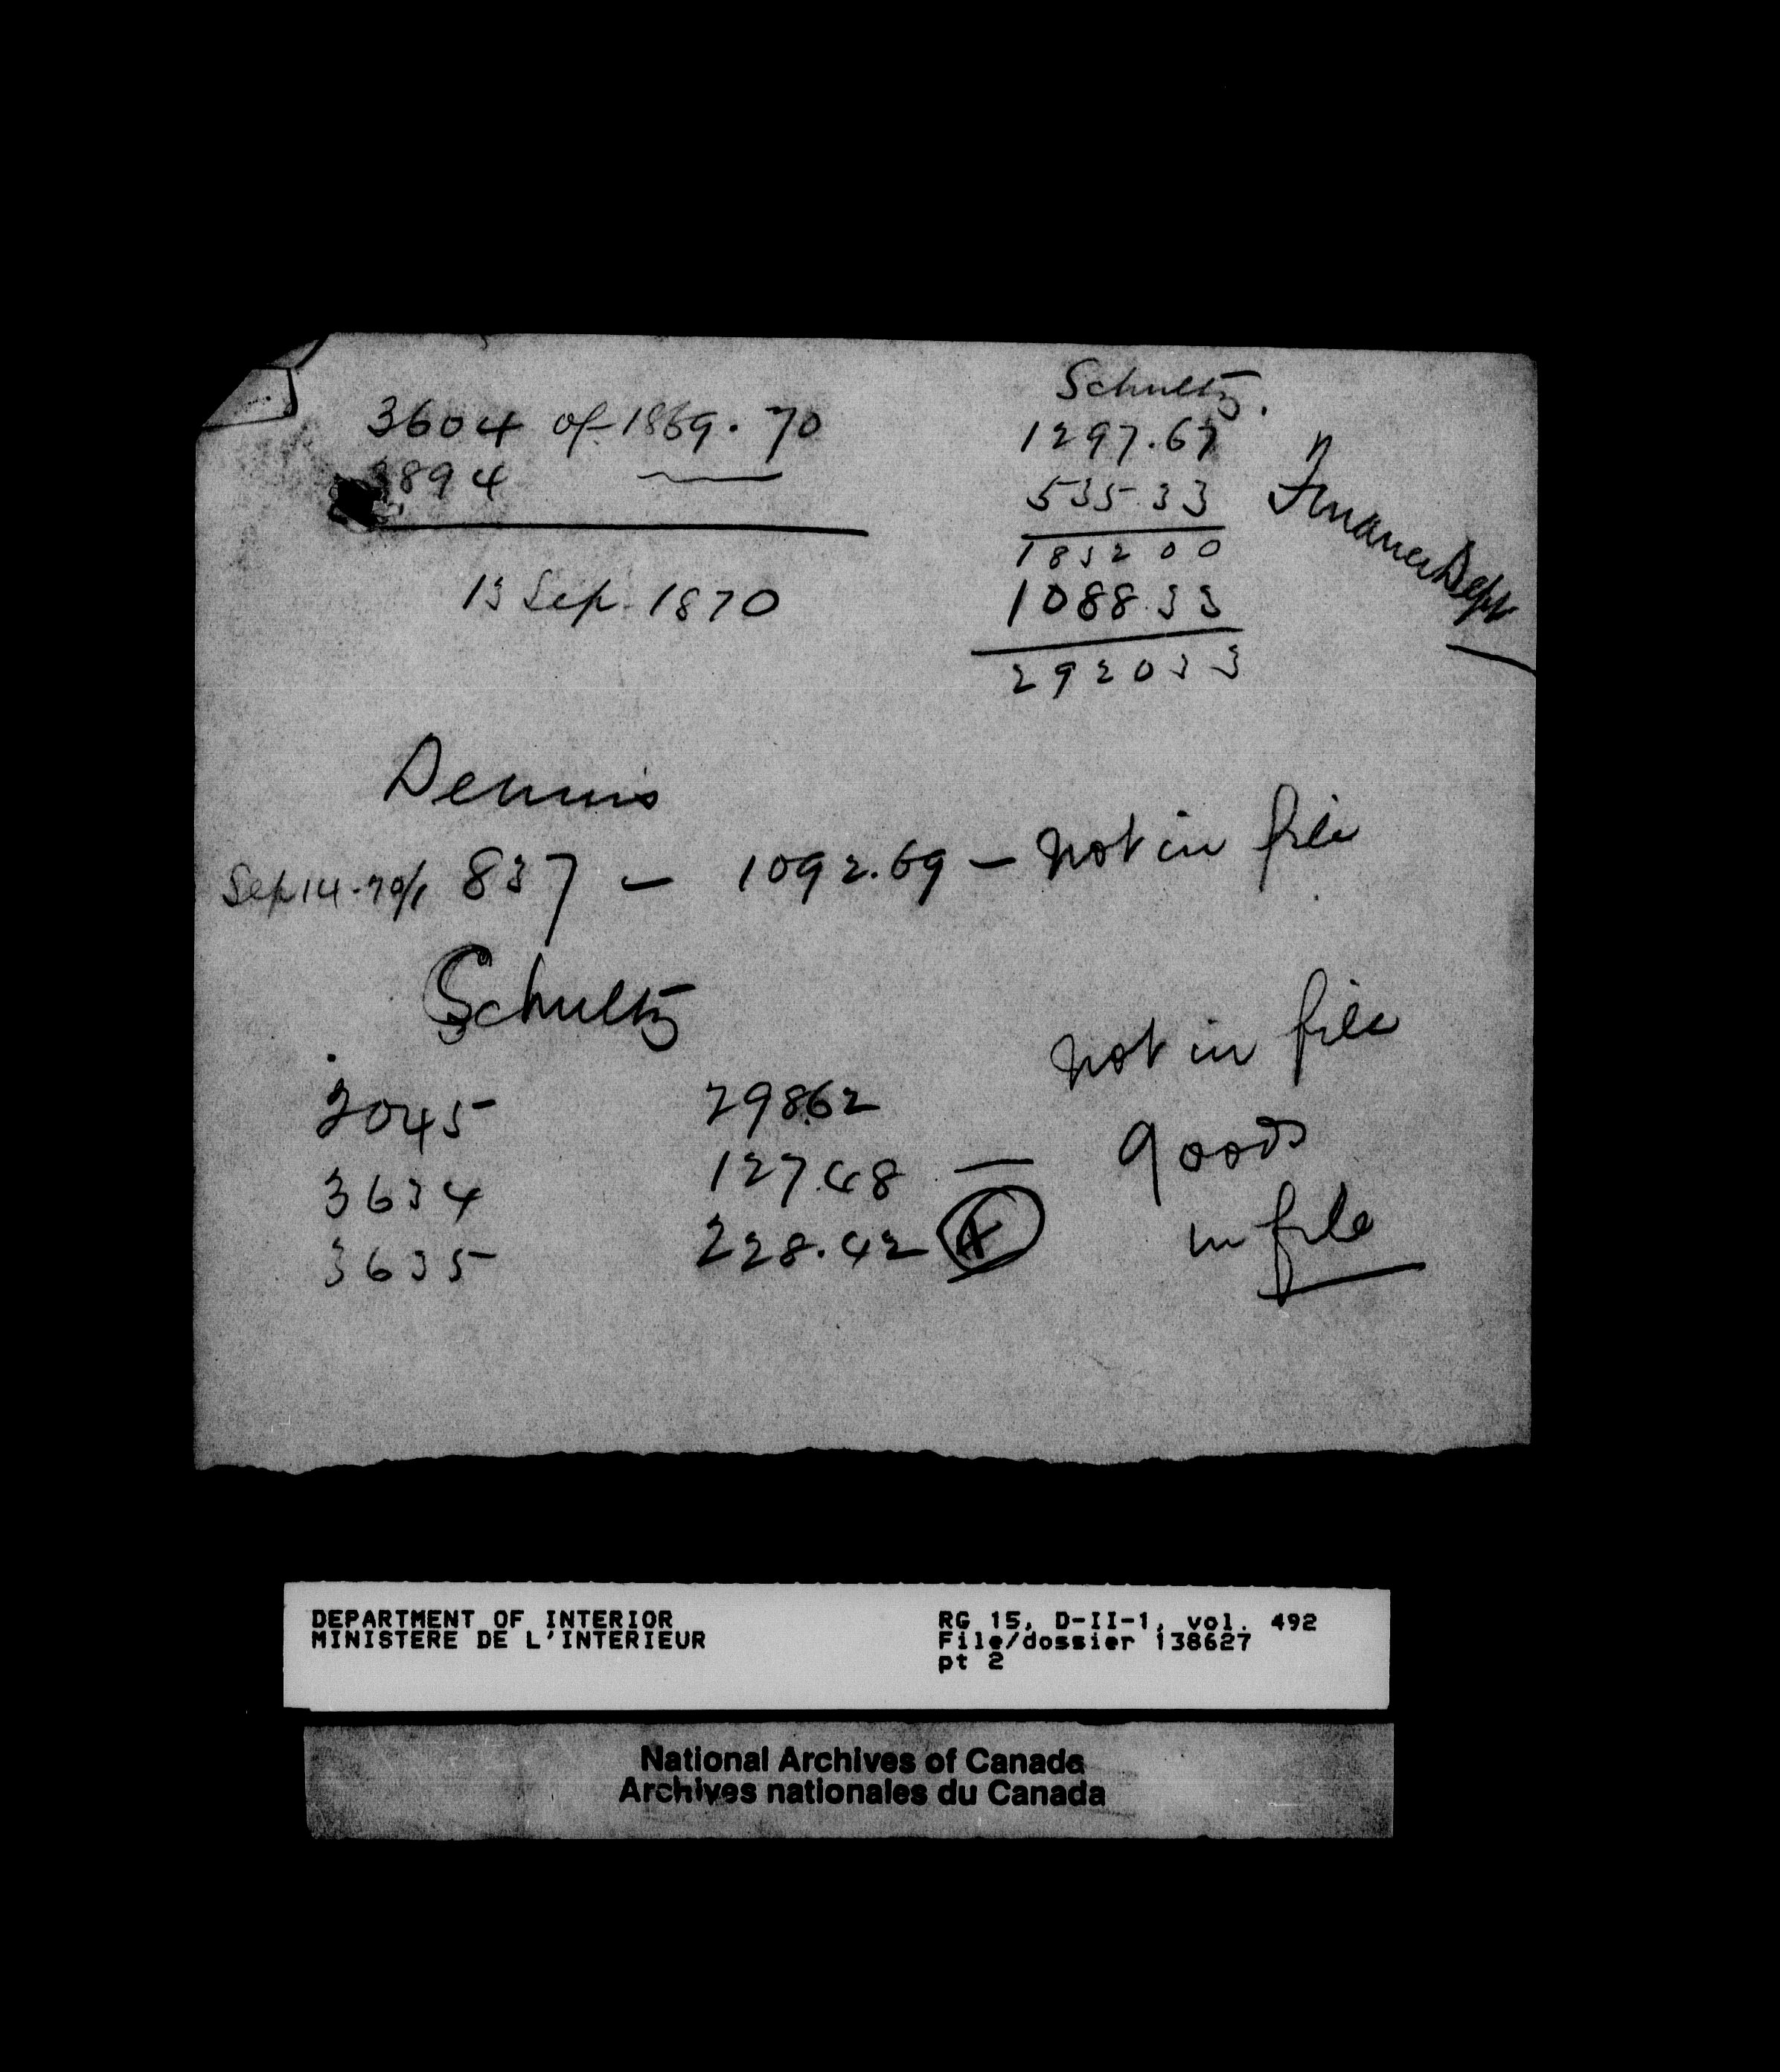 3604 of 1869.70
3894
13 Sep 1870
Schultz.
1297.67
535 33
1832 00
1088 33
2920 33
Finance Dept
Dennis
Sep 14-70/1 837 — 1092.69 — Not in file
Schultz
Not in file
3045 298.62
3634 127.48 — goods
3635 228.42 in file
DEPARTMENT OF INTERIOR
MINISTERE DE L'INTERIEUR
RG 15, D-II-1, vol. 492
File/dossier 138627
pt 2
National Archives of Canada
Archives nationales du Canada